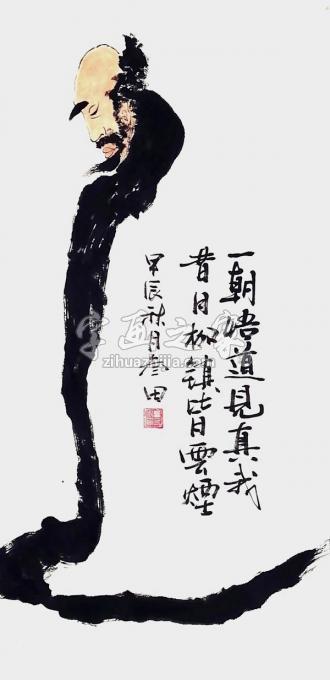 一朝悟道見真我
昔日枷鎖皆雲煙
甲辰秋月田
字画之家
zihuazhijia.com